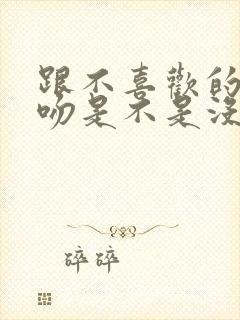 跟不喜歡的
吻是不是沒
碎碎